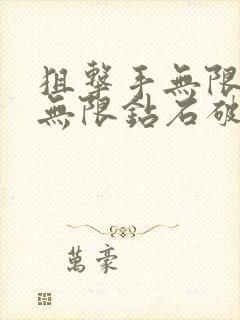 狙擊手無限
無限鈷石破
萬豪